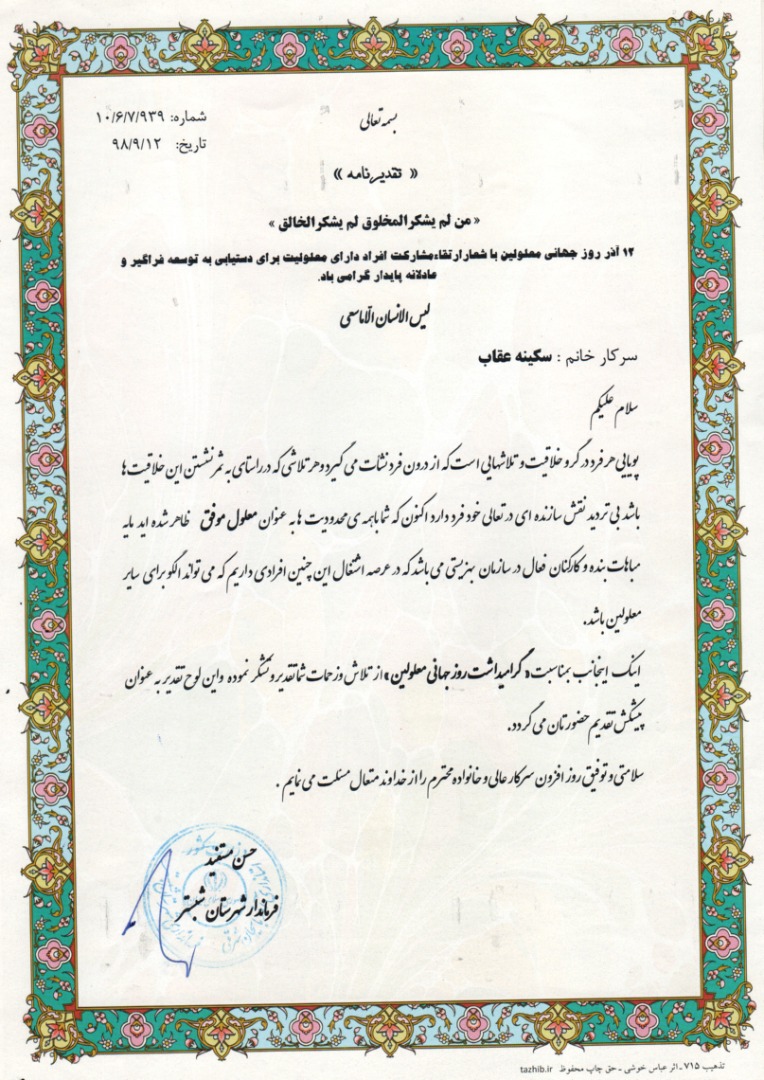 بسمه تعالی
شماره: ۱۰/۶/۷/۹۳۹
تاریخ: ۹۸/۹/۱۲
« تقدیرنامه »
« من لم یشکرالمخلوق لم یشکرالخالق »
۱۲ آذر روز جهانی معلولین با شعار ارتقاءمشارکت افراد دارای معلولیت برای دستیابی به توسعه فراگیر و
عادلانه پایدار گرامی باد.
لیس الانسان الّاماسعی
سرکار خانم : سکینه عقاب
سلام علیکم
پویایی هر فرد در گرو خلاقیت و تلاشهایی است که از درون فرد نشات می گیرد و هر تلاشی که در راستای به ثمر نشستن این خلاقیت ها
باشد بی تردید نقش سازنده ای در تعالی خود فرد دارد اکنون که شما با همه ی محدودیت ها به عنوان معلول موفق ظاهر شده اید مایه
مباهات بنده و کارکنان فعال در سازمان بهزیستی می باشد که در عرصه اشتغال این چنین افرادی داریم که می تواند الگو برای سایر
معلولین باشد.
اینک اینجانب بمناسبت «گرامیداشت روز جهانی معلولین» از تلاش و زحمات شما تقدیر و تشکر نموده واین لوح تقدیر به عنوان
پیشکش تقدیم حضورتان می گردد.
سلامتی و توفیق روز افزون سرکار عالی و خانواده محترم را از خداوند متعال مسئلت می نمایم .
حسن مستفید
فرماندار شهرستان شبستر
تذهیب ۷۱۵ـ اثر عباس خوشی ـ حق چاپ محفوظ tazhib.ir